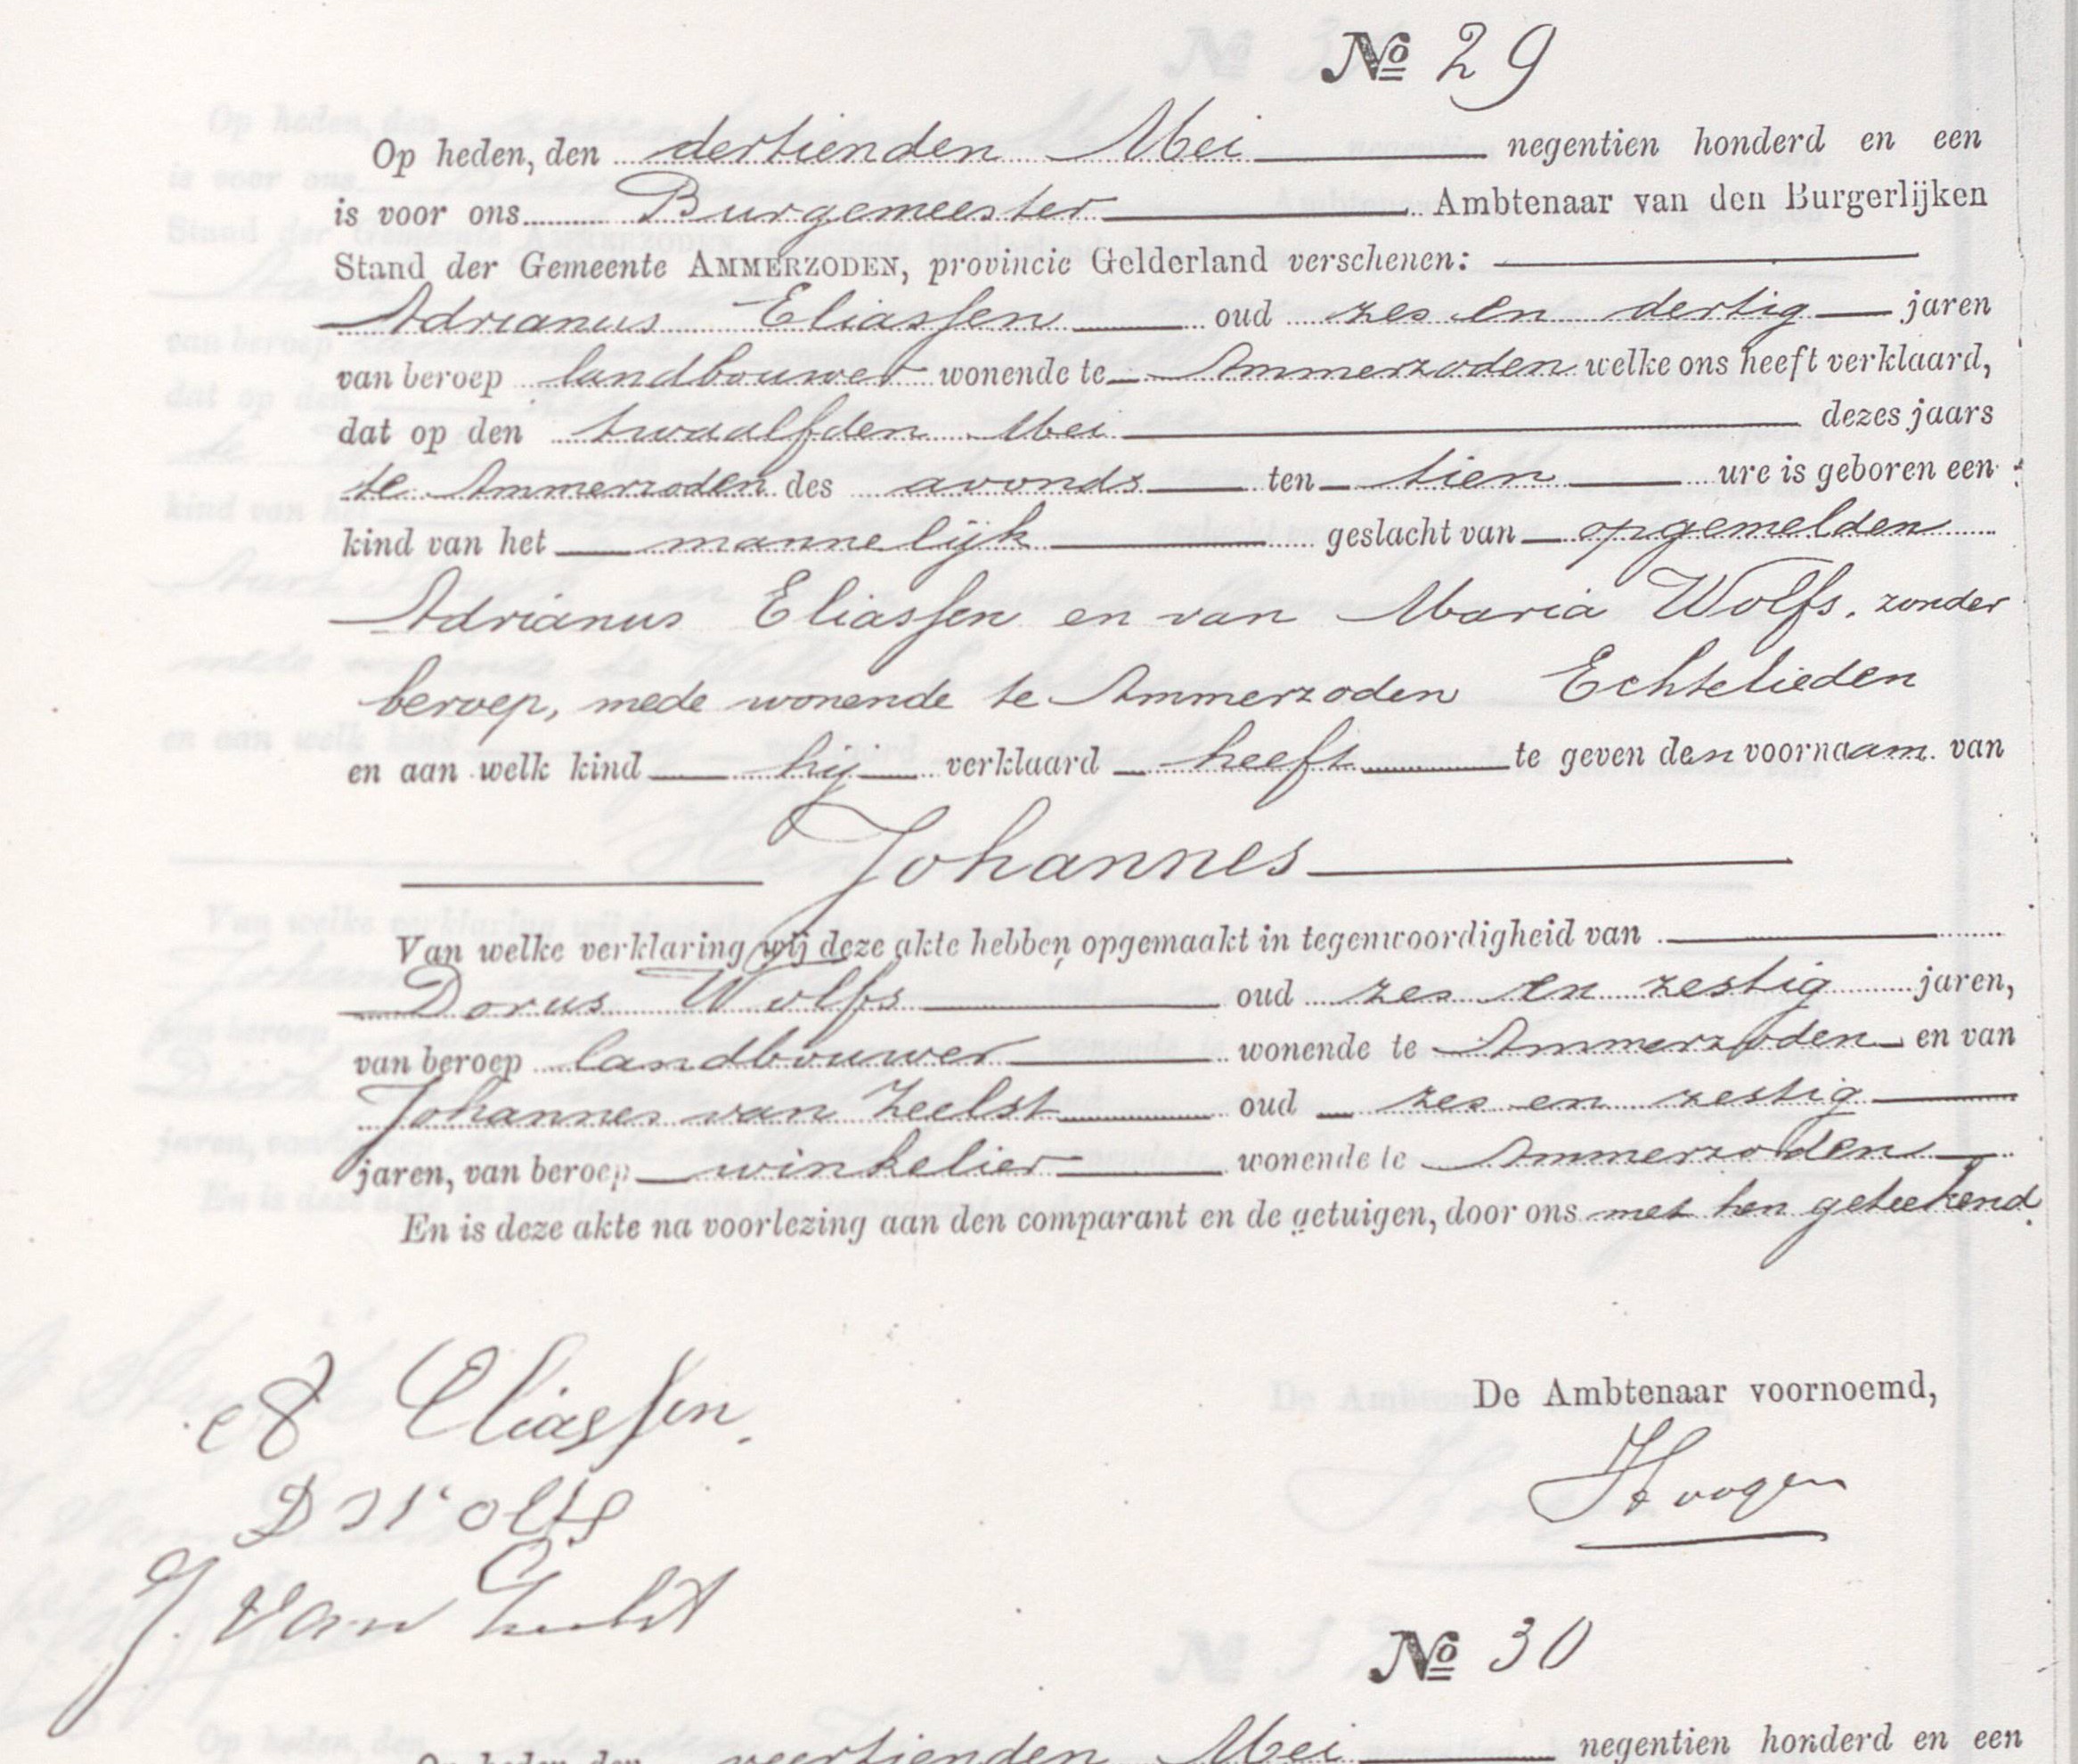 No 29
Op heden, den dertienden Mei negentien honderd en een
is voor ons Burgemeester Ambtenaar van den Burgerlijken
Stand der Gemeente AMMERZODEN, provincie Gelderland verschenen:
Adrianus Eliassen oud zes en dertig jaren
van beroep landbouwer wonende te Ammerzoden welke ons heeft verklaard,
dat op den twaalfden Mei dezes jaars
te Ammerzoden des avonds ten tien ure is geboren een
kind van het mannelijk geslacht van opgemelden
Adrianus Eliassen en van Maria Wolfs, zonder
beroep, mede wonende te Ammerzoden Echtelieden
en aan welk kind hij verklaard heeft te geven den voornaam van
Johannes
Van welke verklaring wij deze akte hebben opgemaakt in tegenwoordigheid van
Dorus Wolfs oud zes en zestig jaren,
van beroep landbouwer wonende te Ammerzoden en van
Johannes van Zeelst oud zes en zestig
jaren, van beroep winkelier wonende te Ammerzoden
En is deze akte na voorlezing aan den comparant en de getuigen, door ons met hen geteekend.
A Eliassen.
De Ambtenaar voornoemd,
D Wolfs
J. van
No 30
Op heden, den veertienden Mei negentien honderd en een